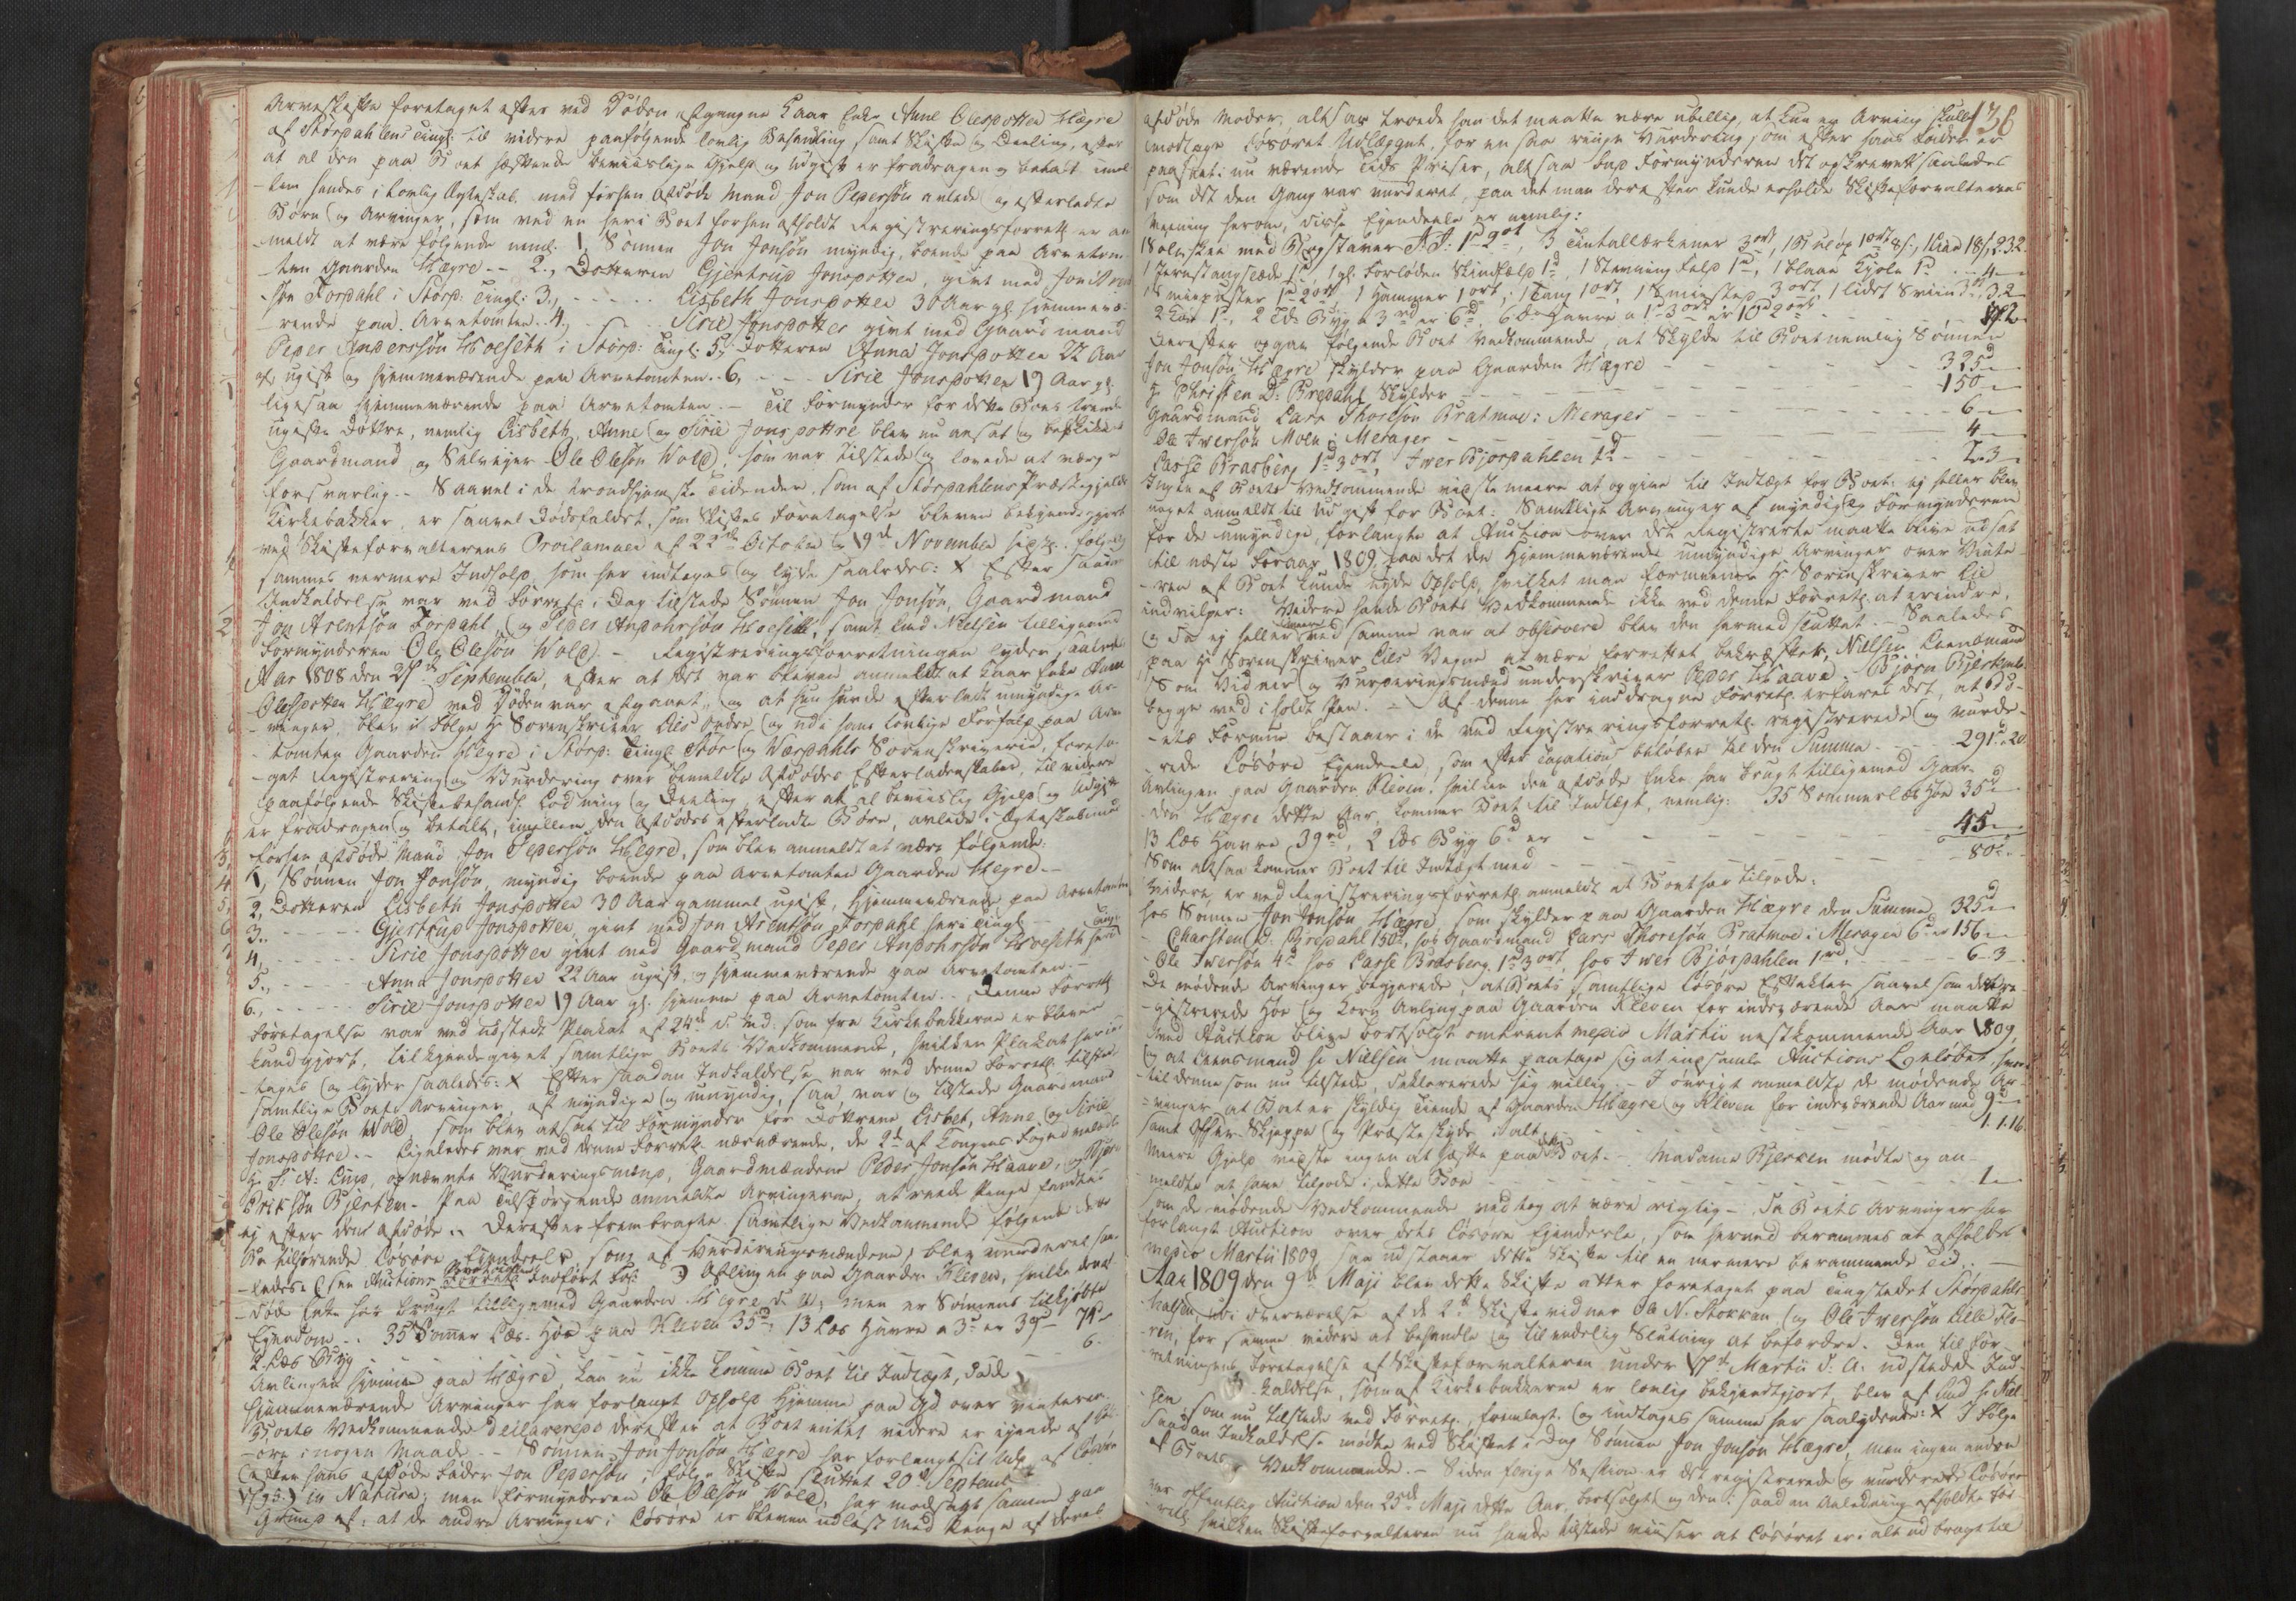 Arveskifte foretaget efter ved Döden afgangne Kaar Enke Anne Olesdotter Hægre
af Stördahlens Tingl: til videre paafölgende lovlig Behandling samt Skifte og Deeling, efter
at al den paa Boet hæftende beviislige Gjeld og Udgift er fradragen og betalt imel¬
lem hendes i lovlig Ægteskab med forhen afdöde Mand Jon Pedersön avlede og efterladte
Börn og Arvinger, som ved en her i Boet forhen afholdt Registreringsforrett: er an¬
meldt at være fölgende neml: 1, Sönnen Jon Jonsön myndig, boende paa Arvetom¬
ten Gaarden Hægre -- 2, Datteren Gjertrud Jonsdotter, givt med Jon
sön Fordahl i Störd: Tingl: 3, ----- Lisbeth Jonsdotter 30 Aar gl. hjemmevæ¬
rende paa Arvetomten. 4, ----- Sirie Jonsdotter givt med Gaardmand
Peder Andersön Hoeseth i Störd: Tingl: 5, Dotteren Anna Jonsdotter 22 Aar
gl, ugift og hjemmeværende paa Arvetomten. 6, ---- Sirie Jonsdotter 19 Aar gl.
ligesaa hjemmeværende paa Arvetomten. - Til Formynder for dette Boes trende
ugifte Döttre, nemlig Lisbeth, Anne og Sirie Jonsdöttre blev nu ansat og beskikket
Gaardmand og Selveyer Ole Olesön Wold, som var tilstede og lovede at værge
forsvarlig. -- Saavel i de trondhjemske Tidender som af Stördahlens Præstegjelds
Kirkebakker, er saavel Dödsfaldet, som Skiftes Foretagelse bleven bekjendtgjort
ved Skifteforvalterens Proclamaer af 22de October og 19de November
sammes nermere Indhold, som her indtages og lyde saaledes: X Efter saadan
Indkaldelse var ved Forrett: i Dag tilstede Sönnen Jon Jonsön, Gaardmand
Jon Arentsön Fordahl og Peder Andohrsön Hoeseth, samt Lmd Nielsen tilligemed
Formynderen Ole Olesön Wold. - Registreringsforretningen lyder saaledes
Aar 1808 den 27de September, efter at det var bleven anmeldt at Kaar Enke Anne
Olesdotter Hægre ved Döden var afgaaet, og at hun havde efterladt umyndige Ar¬
vinger, blev i Fölge Hr Sorenskriver Lies Ordre og udi hans lovlige Forfald paa Arve
tomten Gaarden Hegre i Störd: Tingl: Stör og Wærdahls Sorenskriverie, foreta¬
get Registrering og Vurdering over bemeldte Afdödes Efterladenskaber, til videre
paafölgende Skiftebehandl: Lodning og Deeling, efter at al beviislig Gjeld og Udgift
er fradragen og betalt, imellem den Afdödes efterladte Börn, avlede i Ægteskab med
forhen afdöde Mand Jon Pedersön Hægre, som blev anmeldt at være fölgende:
1, Sönnen Jon Jonsön, myndig boende paa Arvetomten Gaarden Hegre. -
2, Dotteren Lisbeth Jonsdotter 30 Aar gammel ugift, hjemmeværende paa Arvetomten
3, ----- Gjertrud Jonsdotter, givt med Jon Arentsön Fordahl her i Tingl. -
4, ----- Sirie Jonsdotter givt med Gaardmand Peder Andohrsön Hoeseth her i Tingl.
5, ----- Anna Jonsdotter 22 Aar ugift, og hjemmeværende paa Arvetomten. -
6, ----- Sirie Jonsdotter 19 Aar gl. hjemme paa Arvetomten. -, Denne Forrett:
Foretagelse var ved udstedt Plakat af 24de d: Md: som fra Kirkebakkerne er bleven
kundgjort, tilkjendegivet samtlige Boets Vedkommende, hvilken Plakat herin¬
tages og lyder saaledes: X Efter saadan Indkaldelse var ved denne Forrett: tilstede
samtlige Boets Arvinger, af myndige og umyndig, saa, var og tilstede Gaardmand
Ole Olesön Wold som blev ansat til Formynder for Döttrene Lisbet, Anne og Sirie
Jonsdöttre. -- Ligeledes var ved denne Forrett: nærværende, de 2de af Kongens Foged
Hr. P: A: Lund, opnævnte Vurderingsmænd, Gaardmændene Peder Jonsön Haave, og Björn
Erichsön Bjertem. - Paa Tilspörgende anmeldte Arvingerne, at reede Penge fandtes
ej efter den afdöde. - Derefter frembragte samtlige Vedkommende fölgende dette
Boe tilhörende Lösöre Ejendeele som af Vurderingsmændene, blev vurderet saa¬
ledes: (See Auctions Forrett: Indfört Fol: ) Avlingen paa Gaarden Kleven, hvilke den af¬
döde Enke har brugt tilligemed Gaarden Hegre d: A, men er Sönnens tilkjöbte
Ejendom. - 35 Sommer Læs Höe paa Kleven 35d, 13 Læs Havre a 3d er 39d - 74d
2 Læs Byg - - - - - - 6.
Avlingen hjemme paa Hægre, kan nu ikke komme Boet til Indtægt, da de
hjemmeværende Arvinger har forlangt Ophold hjemme paa Gd over Vinteren.
Boets Vedkommende declarerede derefter at Boet intet videre er ejende af Lös¬
öre i nogen Maade. -- Sönnen Jon Jonsön Hægre har forlangt sit Udl: af Lösöre
efter hans afdöde Fader Jon Pedersön, i fölge Skifte sluttet 20de Septemb
1795.) in Natura; men Formynderen Ole Olesön Wold, har modsagt samme paa
Grund af: at de andre Arvinger i Lösöre er bleven udlöst med Penge af deres
136
afdöde Moder, altsaa troede han det maatte være ubillig, at hun ey Arving skulde
modtage Lösöret Udlægget, for en saa ringe Vurdering, som efter hans Fader er
paasat: nu værende Tids Priser, altsaa bad Formynderen det opskrevett saaledes
som det den Gang var vurderet, paa det man derefter kunde erholde Skifteforvalterens
Meening herom, disse Ejendeele er nemlig:
1 Sölvskee med Bogstaver J. J: 1d 2ort, 3 Tintallerkener 3ort, 1 Öxe 1ort 8s, 1 Lie 18s, 232.
1 Jernstang 1d, 1 gl. Forloden Skindfeld 1d, 1 Stevning Feld 1d, 1 blaae Kjole 1d - 4 -
1 Smiepuster 1d 2ort, 1 Hammer 1ort, 1 Tang 1ort, 1 Smiested 3ort, 1 lidet Sviin 3ort, 3.2
2 1d, 2 Tdr Byg a 3rd er 6d, 6 Tdr Havre a 1d 3ort er 10d 2ort -
Derefter opgav fölgende Boet Vedkommende, at Skylde til Boet nemlig Sönnen
Jon Jonsön Hægre skylder paa Gaarden Hægre - - - - 325d
Hr Christen D: Bredahl Skylder - - - - 150 -
Gaardmand Lars Thoresön Bratmoe: Merager - - - - 6 -
Ole Iversön Moen i Merager - - - - 4 -
Lasse Brasberg 1d 3ort, Iver Bjordahlen 1d - - - - 2.3
Ingen af Boets Vedkommende vidste meere at opgive til Indtægt for Boet: ej heller blev
noget anmeldt til Udgift for Boet: Samtlige Arvinger af myndig og Formynderen
for de umyndige, forlangte at Auction over det Registrerte maatte blive udsat
til næste Foraar 1809, paa det de hjemmeværende umyndige Arvinger over Vinte¬
ren af Boet kunde nyde Ophold, hvilket man formeener Hr Sorenskriver Lie
indvilger: Videre havde Boets Vedkommende ikke ved denne Forrett: at erindre,
og da ej heller meere ved samme var at observere blev den hermed sluttet. - Saaledes
paa Hr Sorenskriver Lies Vegne at være forrettet bekræfter, Nielsen, Leensmand
Som Vidner og Vurderingsmænd underskriver Peder Haave - Björn Bjertem
begge ved i holdt Pen. - Af denne her inddragne Forrett: erfares det, at Bo¬
ets Formue bestaaer i de ved Registreringsforrett: registrerede og vurde¬
rede Lösöre Ejendeele, som efter Taxation beløber til den Summa - - 291d.2.20
Avlingen paa Gaarden Kleven, hvilken den afdöde Enke har brugt tilligemed Gaar¬
den Hægre dette Aar, kommer Boet til Indtægt, nemlig: 35 Sommerlæs Höe 35d
13 Læs Havre, 39rd, 2 Læs Byg 6d er - - - - 45 -
Som altsaa kommer Boet til Indtægt med - - - - 80d -
Videre, er ved Registreringsforrett: anmeldt at Boet har tilgode:
hos Sönnen Jon Jonsön Hægre, som skylder paa Gaarden Hægre den Summa 325d
- Charsten D: Bredahl 150d, hos Gaardmand Lars Thoresön Bratmoe i Merager 6d er 156 -
- Ole Iversön 4d hos Lasse Brasberg 1d 3ort, hos Iver Björdahlen 1rd - - - 6.3
De mödende Arvinger begjerede, at Boets samtlige Lösöre Effecter saavel som det re¬
gistrerede Höe og Korn Avling paa Gaarden Kleven for indeværende Aar maatte
ved Auction blive bortsolgt omtrent medio Martii nestkommende Aar 1809,
og at Leensmand Hr Nielsen maatte paatage sig at indsamle Auctions Belöbet, hvor¬
til denne som nu tilstede, deklarerede sig villig. - I övrigt anmeldte de mödende Ar¬
vinger at Boet er skyldig Tiende af Gaarden Hægre og Kleven for indeværende Aar med 9d -
samt Offer-Skjeppe og Præsteskyds i alt - - - - 1.1.16
Meere Gjeld vidste ingen at hæfte paa dette Boet. - Madame Bjerken mödte og an¬
meldte at have tilgode i dette Boe - - - - 1 -
som de mödende Vedkommende vedtog at være rigtig -, Da Boets Arvinger har
forlangt Auction over dets Lösöre Ejendeele, som herved berammes at afholdes
medio Martii 1809 saa udstaaer dette Skifte til en nermere berammende Tid. -
Aar 1809 den 9de Maji blev dette Skifte atter foretaget paa Tingstedet Stördahls¬
halsen, udi Overværelse af de 2de Skiftevidner Ole N. Stokkan og Ole Iversön Lille Flo¬
ren, for samme videre at behandle og til endelig Slutning at befordre. Den til For¬
retningens Foretagelse af Skifteforvalteren under 17de Martii d: A: udstedde Ind¬
kaldelse, som af Kirkebakkerne er lovlig bekjendtgjort, blev af Lmd Hr Niel¬
sen, som nu tilstede ved Forrett:, fremlagt og indtages samme her saalydende: X I Fölge
saadan Indkaldelse mödte ved Skiftet i Dag Sönnen Jon Jonsön Hægre, men ingen andre
af Boets Vedkommende. - Siden forige Session er det registrerede og vurderede Lösöre
ver offentlig Auction den 25de Maji dette Aar, bortsolgt og den i saadan Anledning afholdte For¬
rett: hvilken Skifteforvalteren nu havde tilstede viiser at Lösöret er i alt udbragt til